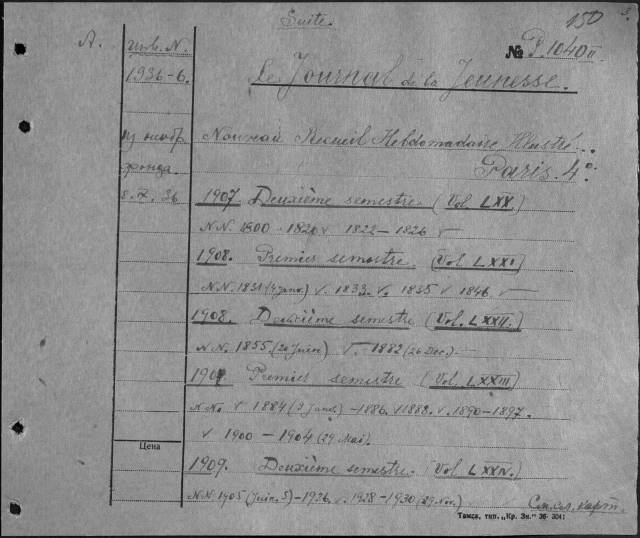 Suite.
150
A. инв. N. № P.1040 II.
1936-6. Le Journal de la Jeunesse.
из необр. Nouveau Recueil Hebdomadaire Illustré.
фонда. Paris. 4º.
8.X.36 1907 Deuxième semestre. (Vol. LXX.)
N.N. 1800 - 1820 v 1822-1826 v
1908. Premier semestre. (Vol. LXXI)
N.N. 1831 (4 janv.) v. 1833. v. 1835 v 1846 v
1908. Deuxième semestre (Vol. LXXII.)
N.N. 1855 (20 Juin) v. -1882 (26 Dec.) -
1909 Premier semestre (Vol. LXXIII)
N.No v 1884 (9 Janv.) -1886. v 1888. v. 1890-1897.
v 1900 - 1904 (29 Mai).
Цена
1909. Deuxième semestre. (Vol. LXXIV.)
N.N. 1905 (Juin. 5) - 1926. v. 1928-1930 (29 Nov.) См. сл. карт.
Тамса, тип. „Кр. Зн." 36- 304;